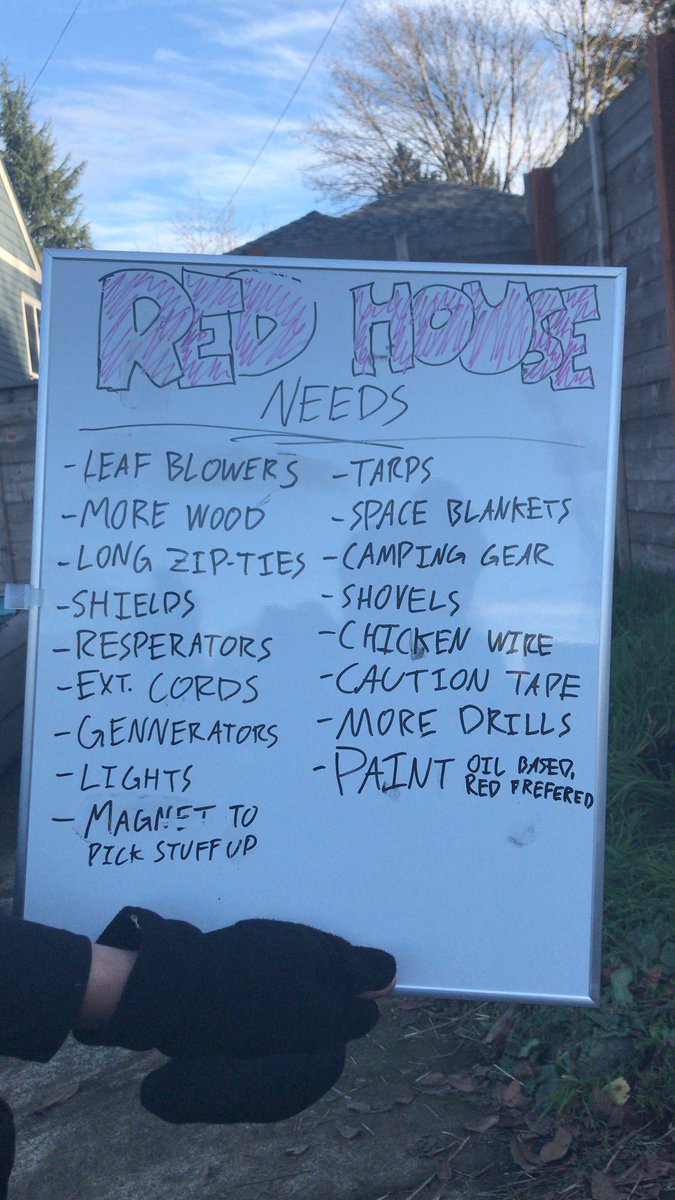 RED HOUSE
NEEDS
- LEAF BLOWERS
- MORE WOOD
- LONG ZIP-TIES
- SHIELDS
- RESPERATORS
- EXT. CORDS
- GENNERATORS
- LIGHTS
- MAGNET TO
PICK STUFF UP
- TARPS
- SPACE BLANKETS
- CAMPING GEAR
- SHOVELS
- CHICKEN WIRE
- CAUTION TAPE
- MORE DRILLS
- PAINT OIL BASED,
RED PREFERED